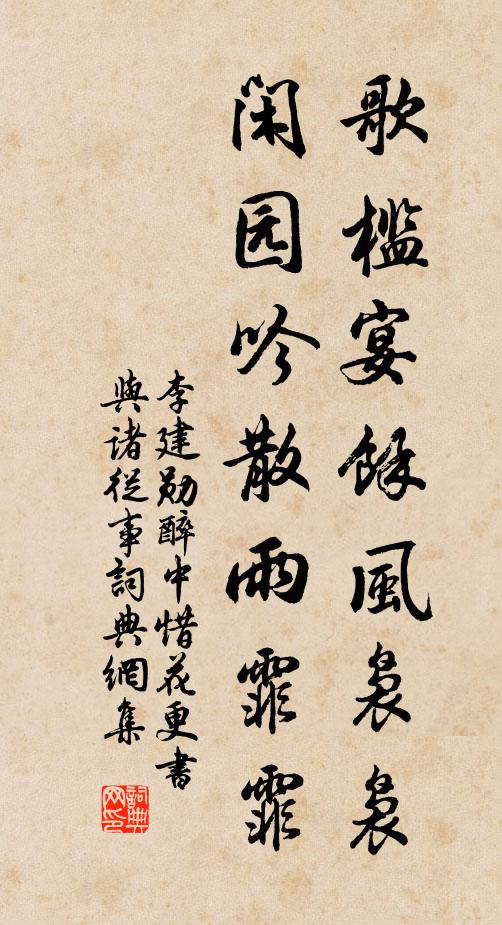 歌槛宴馀風裊裊
闲园吟散雨霏霏
李建勋醉中惜花更書
與诸從事詞典網集
詞典网印